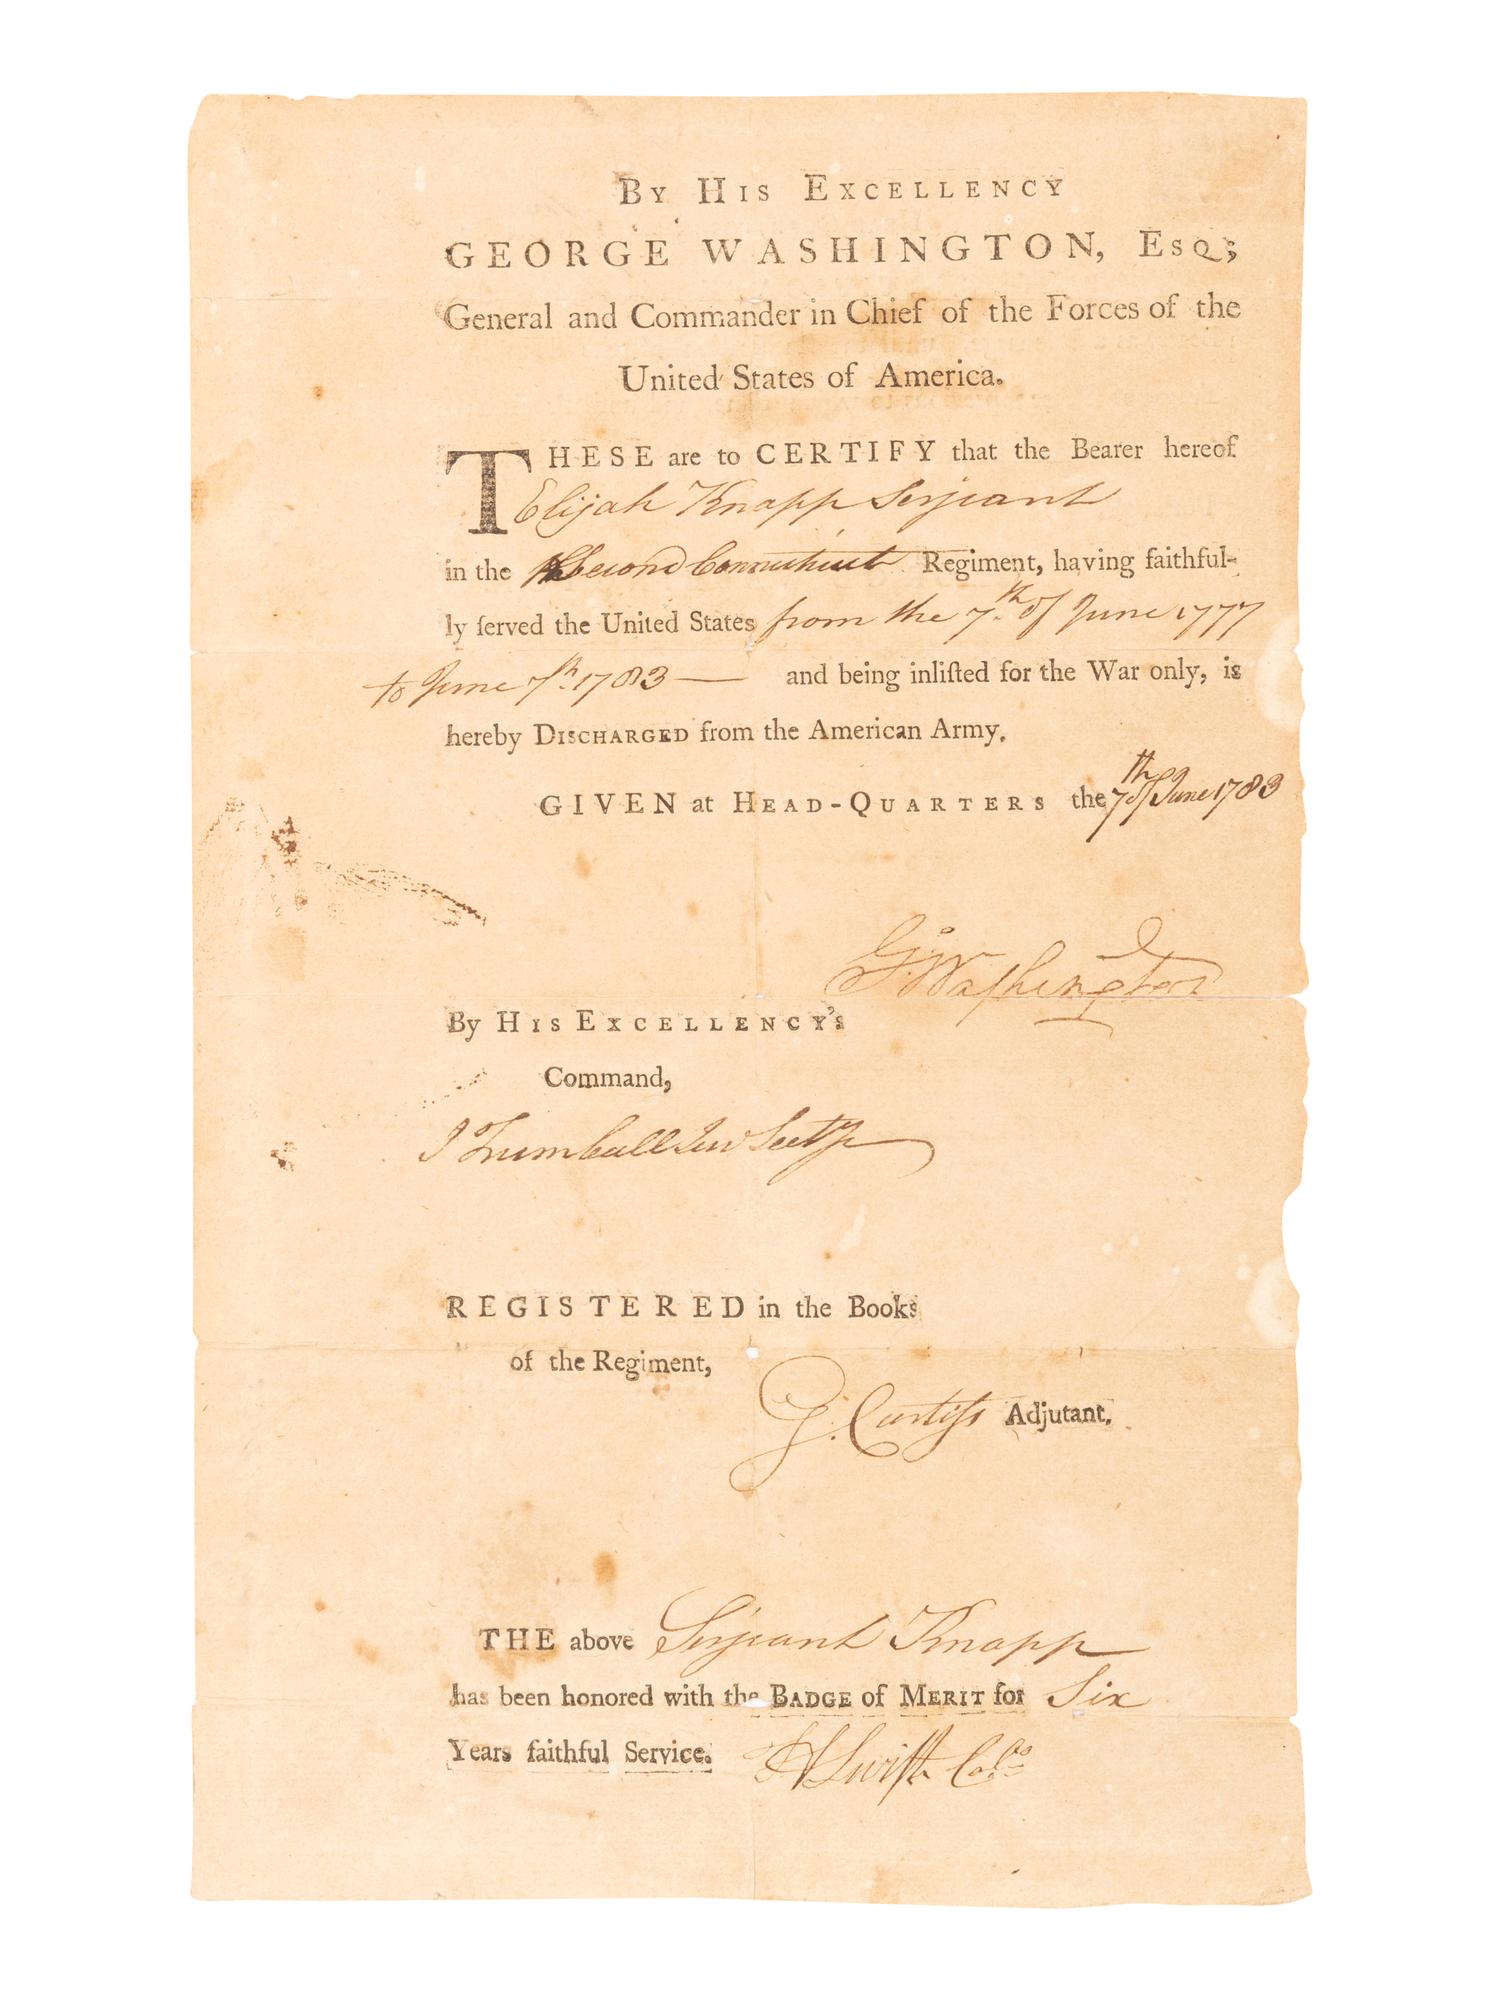 By His Excellency
GEORGE WASHINGTON, Esq;
General and Commander in Chief of the Forces of the
United States of America.
THESE are to CERTIFY that the Bearer hereof
Elijah Knapp Serjeant
in the Second Connecticut Regiment, having faithful-
ly ſerved the United States from the 7.th of June 1777
to June 7th. 1783 — and being inliſted for the War only, is
hereby Discharged from the American Army.
GIVEN at Head-Quarters the 7th of June 1783
Go: Washington
By His Excellency's
Command,
J Trumbull Jun Secty
REGISTERED in the Books
of the Regiment,
G. Curtiſs Adjutant.
THE above Serjeant Knapp
has been honored with the Badge of Merit for Six
Years faithful Service. H Swift Colo